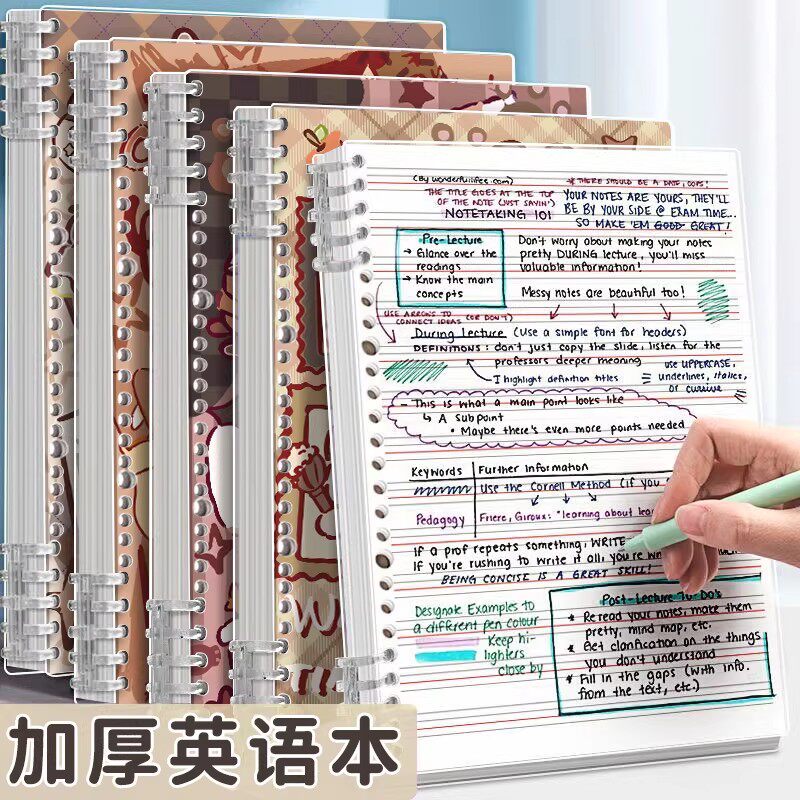 (By wonderfullifee.com)
* THERE SHOULD BE A DATE, OOPS!
THE TITLE GOES AT THE TOP
OF THE NOTE (JUST SAYIN')
NOTETAKING 101
YOUR NOTES ARE YOURS, THEY'LL
BE BY YOUR SIDE @ EXAM TIME...
SO MAKE 'EM GOOD GREAT!
Pre-Lecture
→ Glance over the
readings
→ Know the main
concepts
Don't worry about making your notes
pretty DURING lecture, you'll miss
valuable information!
Messy notes are beautiful too!
USE ARROWS TO
CONNECT IDEAS (OR DON'T)
During Lecture (Use a simple font for headers)
DEFINITIONS: don't just copy the slide, listen for the
professors deeper meaning
I highlight definition titles
use UPPERCASE,
underlines, italics,
or cursive
- This is what a main point looks like
↳ A subpoint
• Maybe there's even more points needed
Keywords
Further Information
Use the Cornell Method (if you
Pedagogy
Friere, Giroux: "learning about
If a prof repeats something, WRITE
If you're rushing to write it all, you're
BEING CONCISE IS A GREAT SKILL!
Designate Examples to
a different pen colour
Keep hi-
lighters
close by
Post-Lecture To-Do's
* Re read your notes, make them
pretty, mind map, etc.
* Get clarification on the things
you don't understand
* Fill in the gaps (with info.
from the text, etc.)
加厚英语本